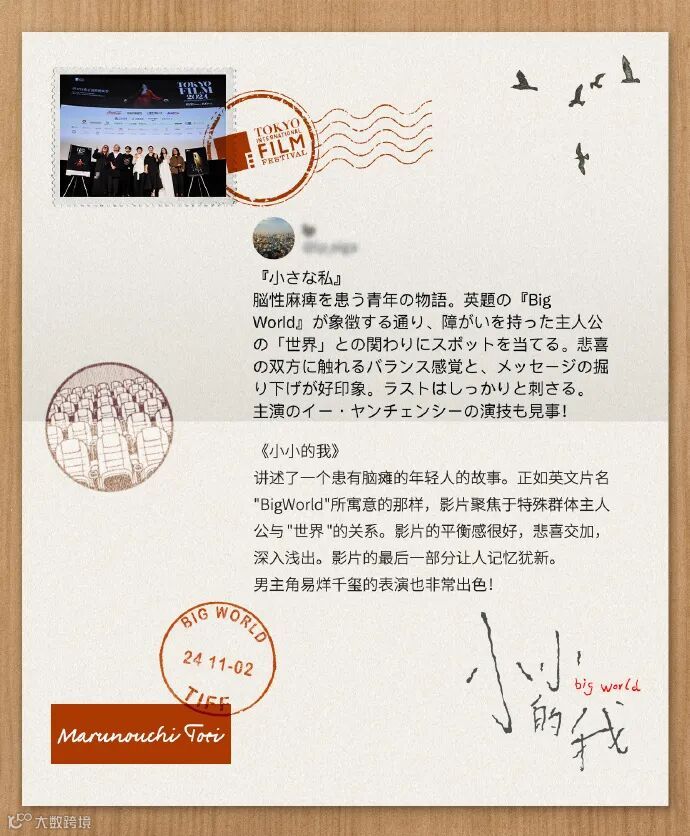 TOKYO
FILM
2024
TOKYO
INTERNATIONAL
FILM
FESTIVAL
『小さな私』
脳性麻痺を患う青年の物語。英題の『Big
World』が象徴する通り、障がいを持った主人公
の「世界」との関わりにスポットを当てる。悲喜
の双方に触れるバランス感覚と、メッセージの掘
り下げが好印象。ラストはしっかりと刺さる。
主演のイー・ヤンチェンシーの演技も見事！
《小小的我》
讲述了一个患有脑瘫的年轻人的故事。正如英文片名
"BigWorld"所寓意的那样，影片聚焦于特殊群体主人
公与"世界"的关系。影片的平衡感很好，悲喜交加，
深入浅出。影片的最后一部分让人记忆犹新。
男主角易烊千玺的表演也非常出色！
BIG WORLD
24 11-02
TIFF
Marunouchi Toei
小小的我
big world
大数跨境